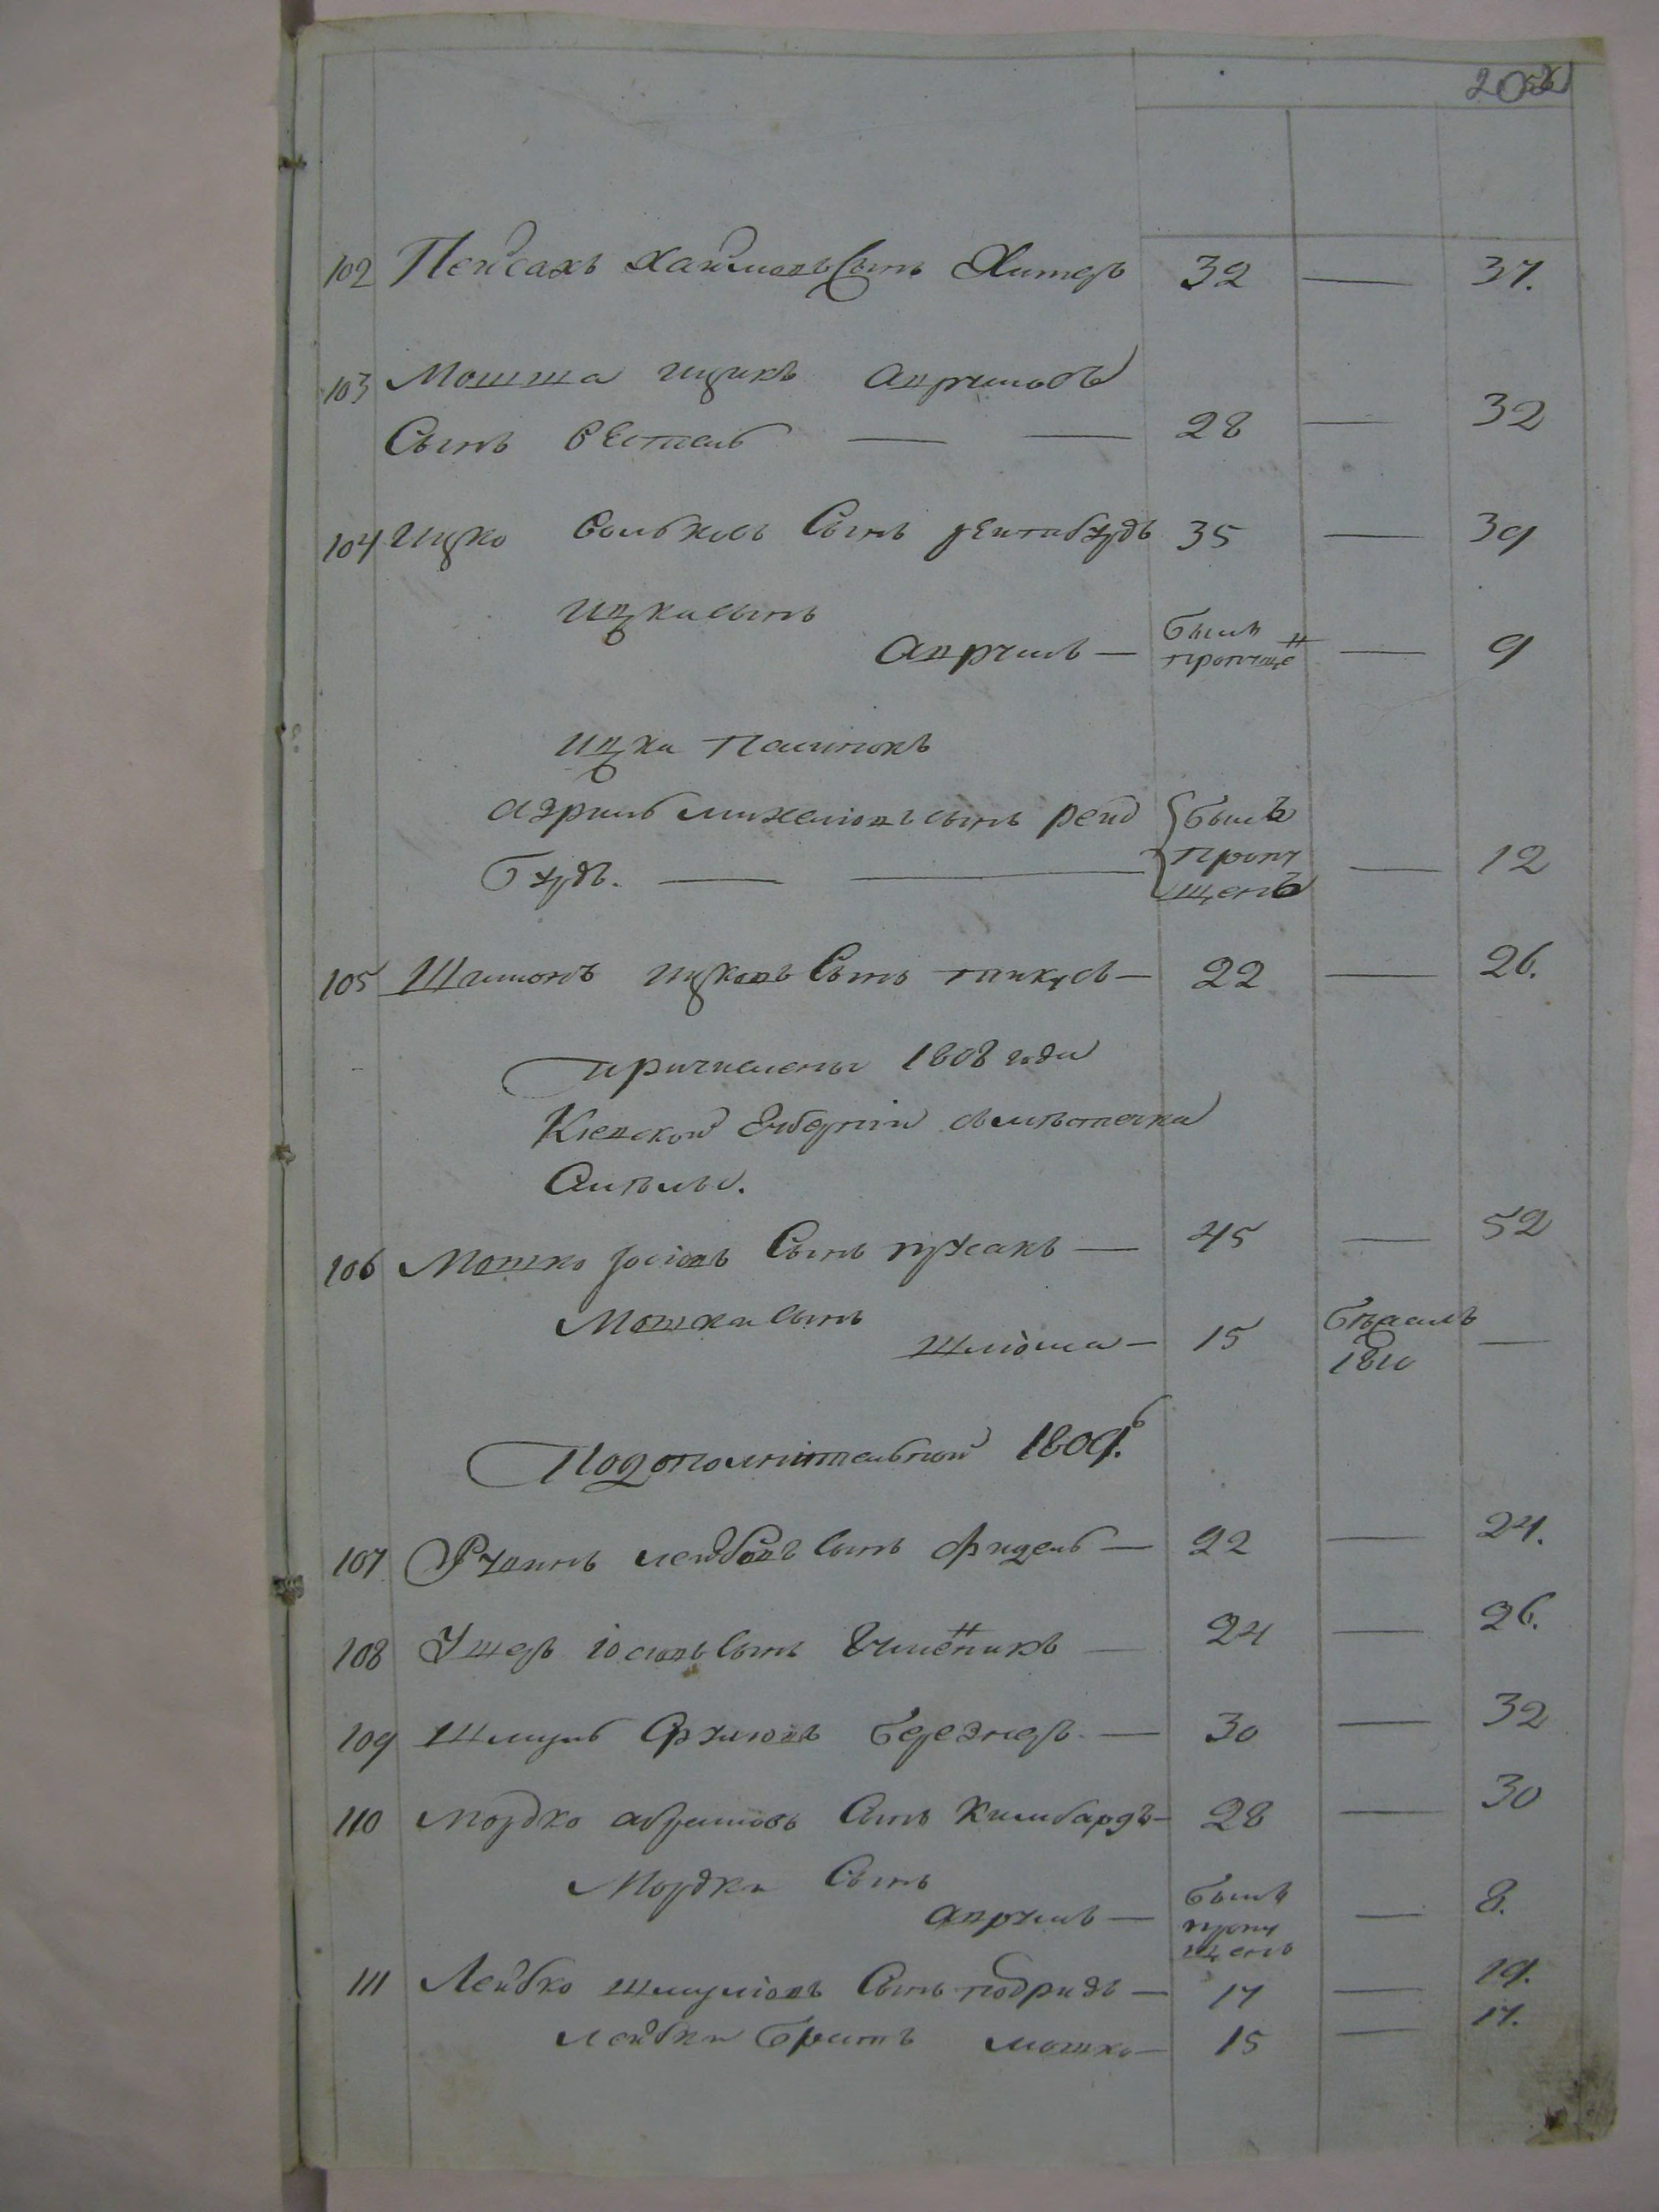 202
102 Пейсахъ Хаимовъ Сынъ Хитеръ 32 — 37.
103 Мошка ицикъ Аврумовъ
Сынъ вестель — — 28 — 32
104 Ицко Вольковъ Сынъ рейтибурдъ 35 — 39
ицка сынъ
Аврумъ — былъ пропуще н — 9
ицка племянъ
Азриль михелiовъ сынъ рейд былъ
бурдъ. — — пропу — 12
щенъ
105 Шлиомъ ицковъ Сынъ пикусъ — 22 — 26.
причислены 1808 года
Киевской Губернiи съ местечка
106 Мошко Iосiовъ Сынъ пужакъ — 45 — 52
Мошка сынъ
Шлiома — 15 бежалъ 1810 —
Подополнительной 1809.
107 Рувинъ лейбовъ сынъ фидель — 22 — 24.
108 Ушеръ iосiовъ сынъ — 24 — 26.
109 Шмуль Срулiовъ Березнеръ — 30 — 32
110 Мордко аврумовъ Сынъ Кимбардъ — 28 — 30
Мордка Сынъ
аврумъ — былъ пропу щенъ — 8.
111 Лейбко шмулiовъ Сынъ подридъ — 17 — 19.
лейбка братъ мошко — 15 — 17.